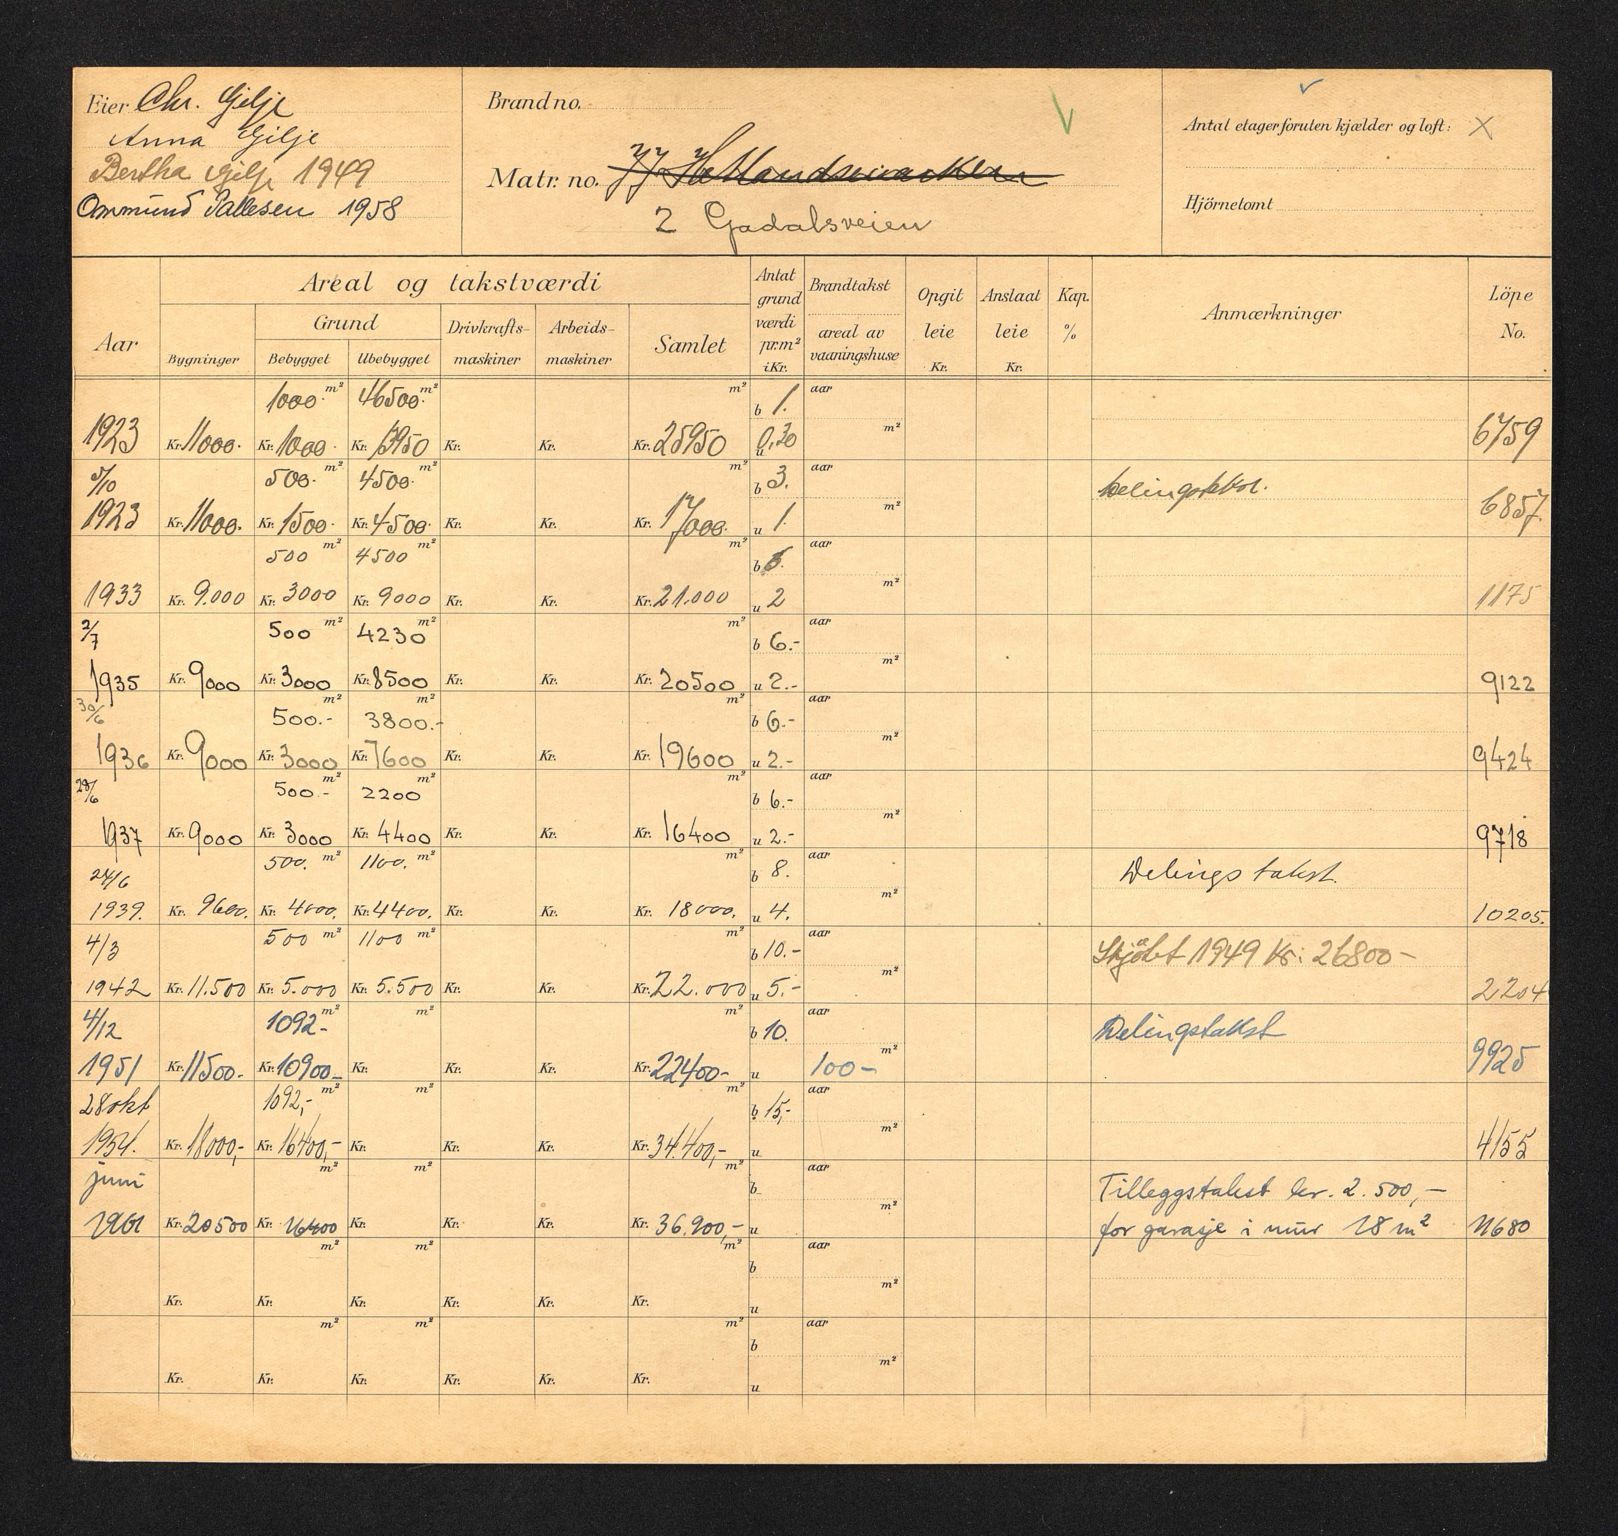 Eier Chr. Gilje
Anna Gilje
Bertha Gilje 1949
Ommund Sallesen 1958
Brand no.
Matr. no.
2 Gadalsveien
Antal etager foruten kjælder og loft: X
Hjörnetomt
Aar
Areal og takstværdi
Bygninger
Grund
Bebygget Ubebygget
Drivkrafts-maskiner
Arbeids-maskiner
Samlet
Antat grundværdi pr. m² i Kr.
Brandtakst
areal av vaaningshuse
Opgit leie Kr.
Anslaat leie Kr.
Kap. %
Anmærkninger
Löpe No.
1000 m² 46500 m² m² b 1. aar
1923 Kr. 11000. Kr. 1000. Kr. 13950 Kr. Kr. Kr. 25950 u 0,30 m² 6759
5/10 500. m² 4500. m² m² b 3. aar Delingstakst.
1923 Kr. 11000. Kr. 1500. Kr. 4500. Kr. Kr. Kr. 17000. u 1. m² 6857.
500 m² 4500 m² m² b 6. aar
1933 Kr. 9.000 Kr. 3000 Kr. 9000 Kr. Kr. Kr. 21.000 u 2 m² 1175
2/7 500 m² 4230 m² m² b 6.- aar
1935 Kr. 9000 Kr. 3000 Kr. 8500 Kr. Kr. Kr. 20500 u 2.- m² 9122
30/6 500.- m² 3800.- m² m² b 6.- aar
1936 Kr. 9000 Kr. 3000 Kr. 7600 Kr. Kr. Kr. 19600 u 2.- m² 9424
28/6 500.- m² 2200 m² m² b 6.- aar
1937 Kr. 9000 Kr. 3000 Kr. 4400 Kr. Kr. Kr. 16400 u 2.- m² 9718
24/6 500. m² 1100. m² m² b 8. aar Delingstakst.
1939. Kr. 9600. Kr. 4000. Kr. 4400. Kr. Kr. Kr. 18000. u 4. m² 10205.
4/3 500 m² 1100 m² m² b 10.- aar Skjöbt 1949 Kr: 26800-
1942 Kr. 11.500 Kr. 5.000 Kr. 5.500 Kr. Kr. Kr. 22.000 u 5.- m² 2204
4/12 1092- m² m² m² b 10. aar Delingstakst
1951 Kr. 11500- Kr. 10900- Kr. Kr. Kr. Kr. 22400- u 100- m² 9925
28 okt 1092,- m² m² m² b 15,- aar
1954. Kr. 18000,- Kr. 16400,- Kr. Kr. Kr. Kr. 34.400,- u m² 4155
juni m² m² m² b aar Tilleggstakst kr. 2.500,-
1961 Kr. 20500 Kr. 16400 Kr. Kr. Kr. Kr. 36.900,- u m² for garasje i mur 18 m² 11680
m² m² m² b aar
Kr. Kr. Kr. Kr. Kr. Kr. u m²
m² m² m² b aar
Kr. Kr. Kr. Kr. Kr. Kr. u m²